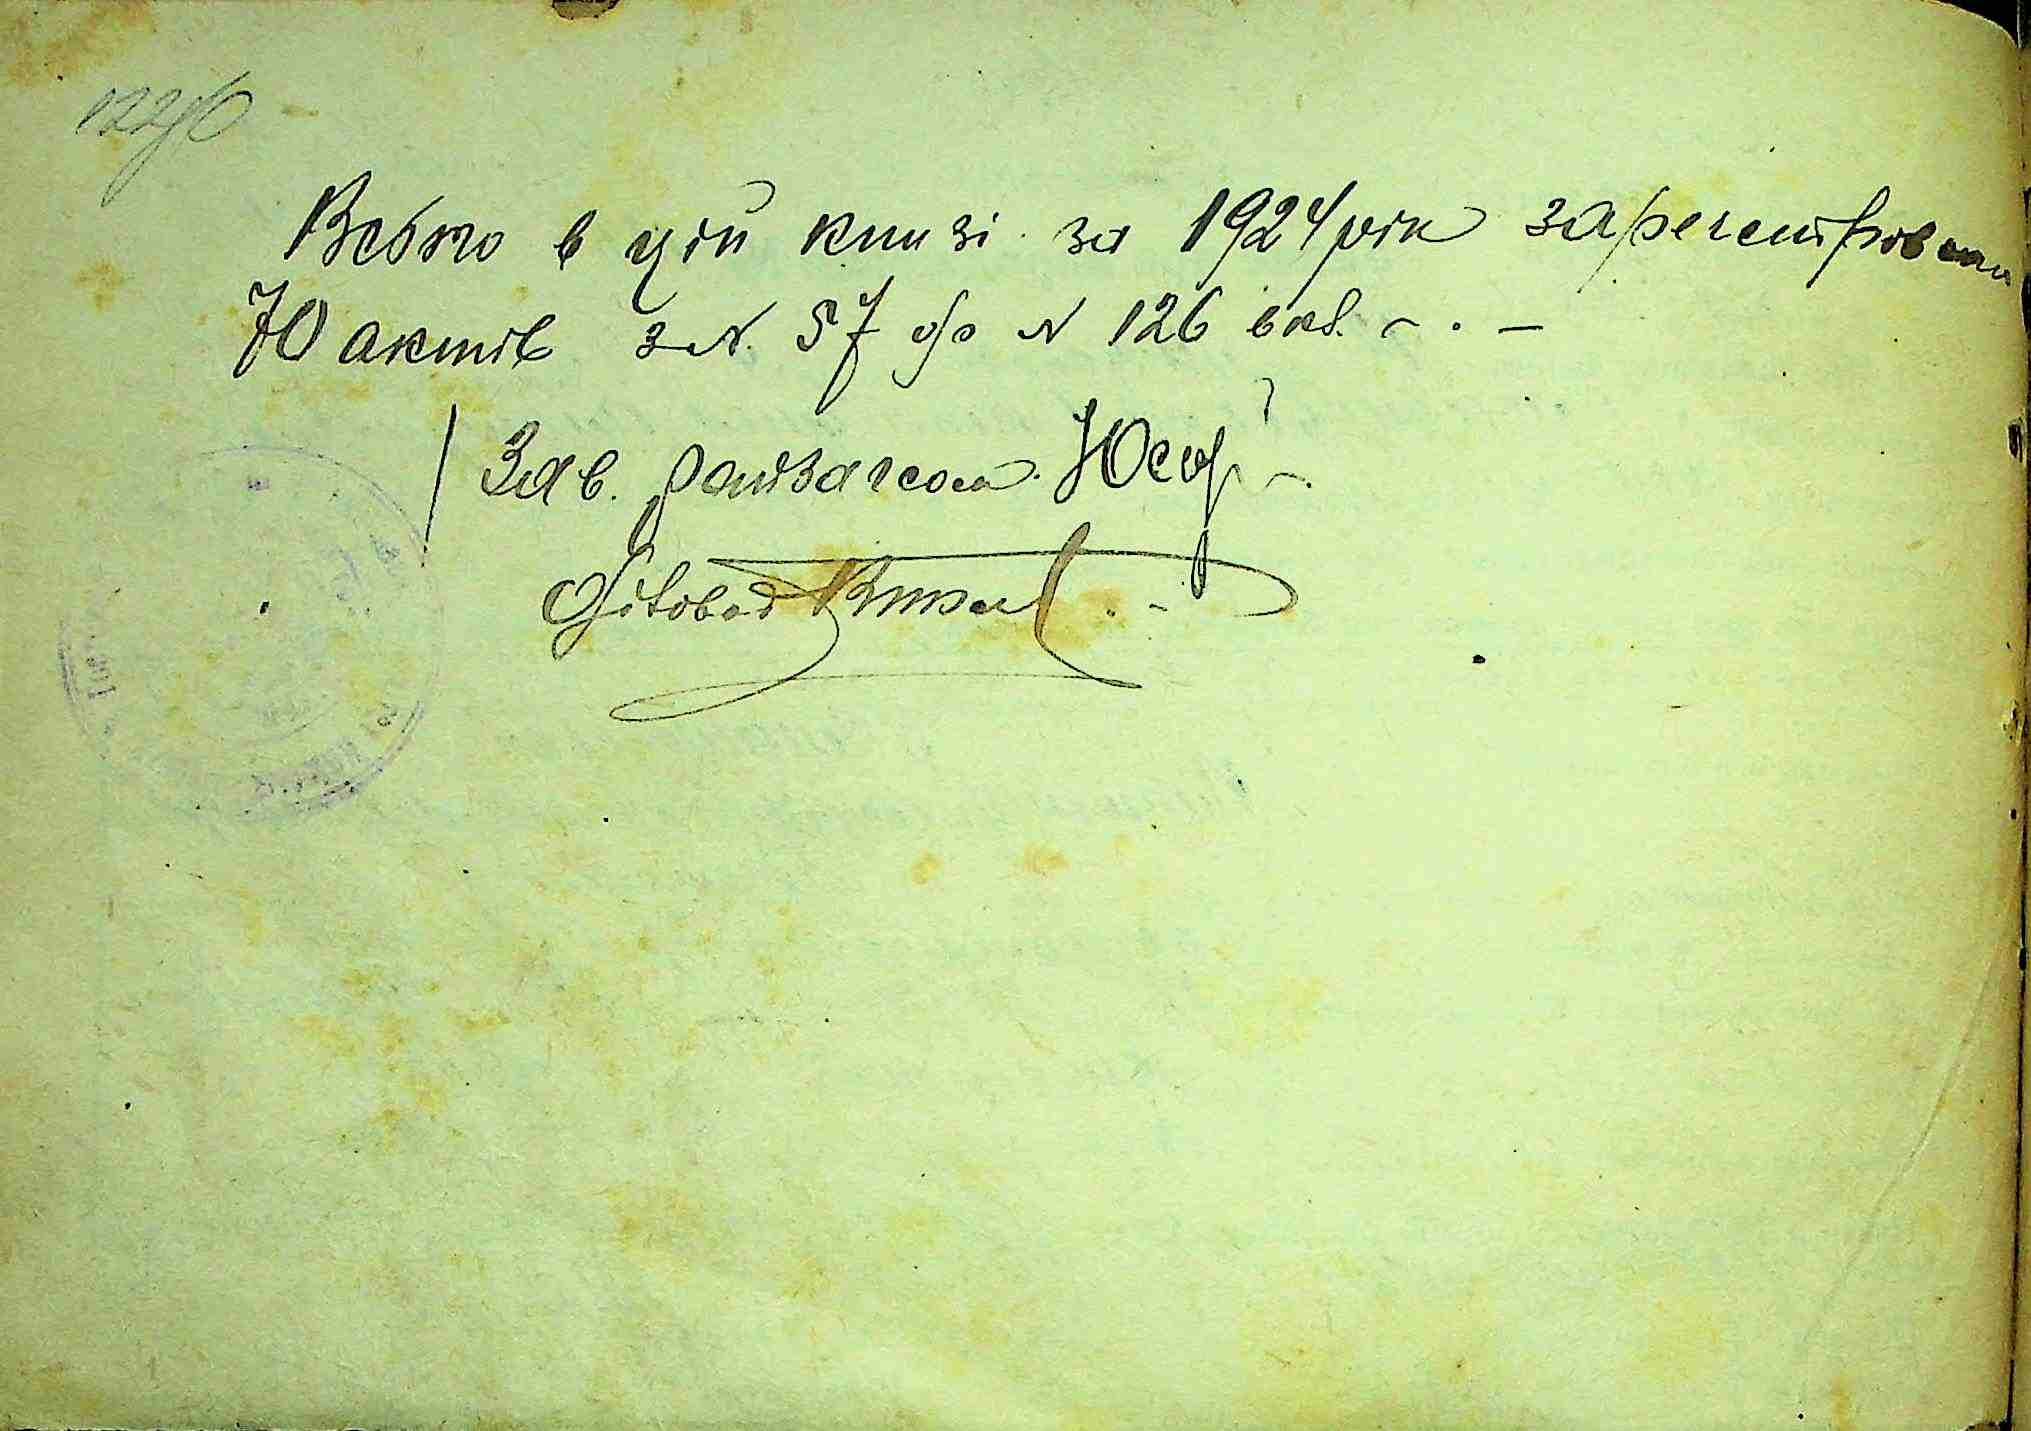 Всього в цій книзі за 1924 рік зарегистровано
70 актів з № 57 до № 126 вкл.
Зав. райзагсом
Діловод